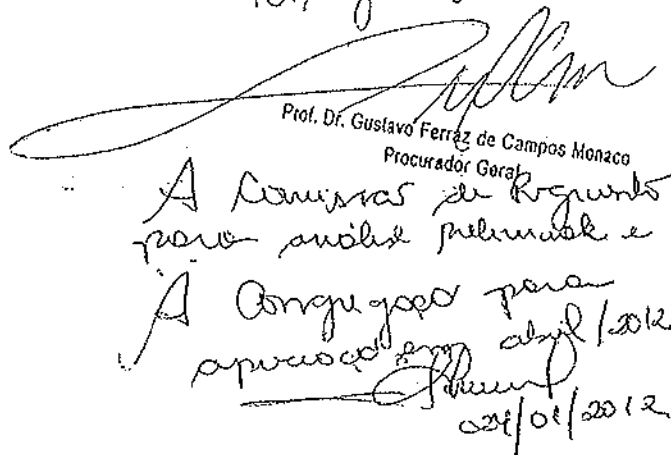 Prof. Dr. Gustavo Ferraz de Campos Monaco
Procurador Geral
À Comissão de Regimento
para análise preliminar e
À Congregação para
apreciação em abril/2012
/01/2012